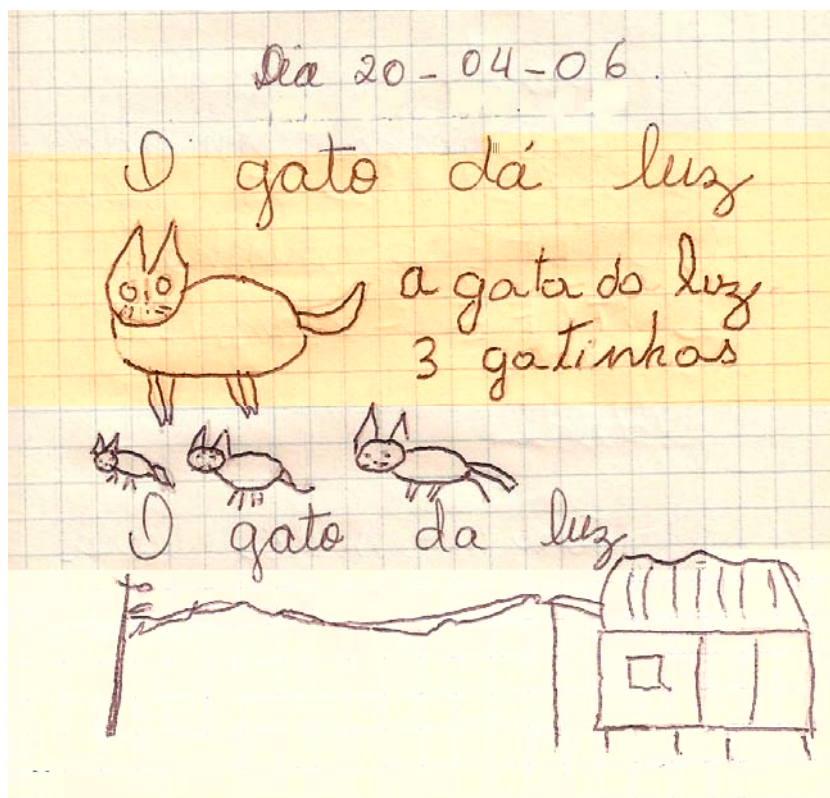 Dia 20-04-06.
O gato dá luz
a gata do luz
3 gatinhos
O gato da luz